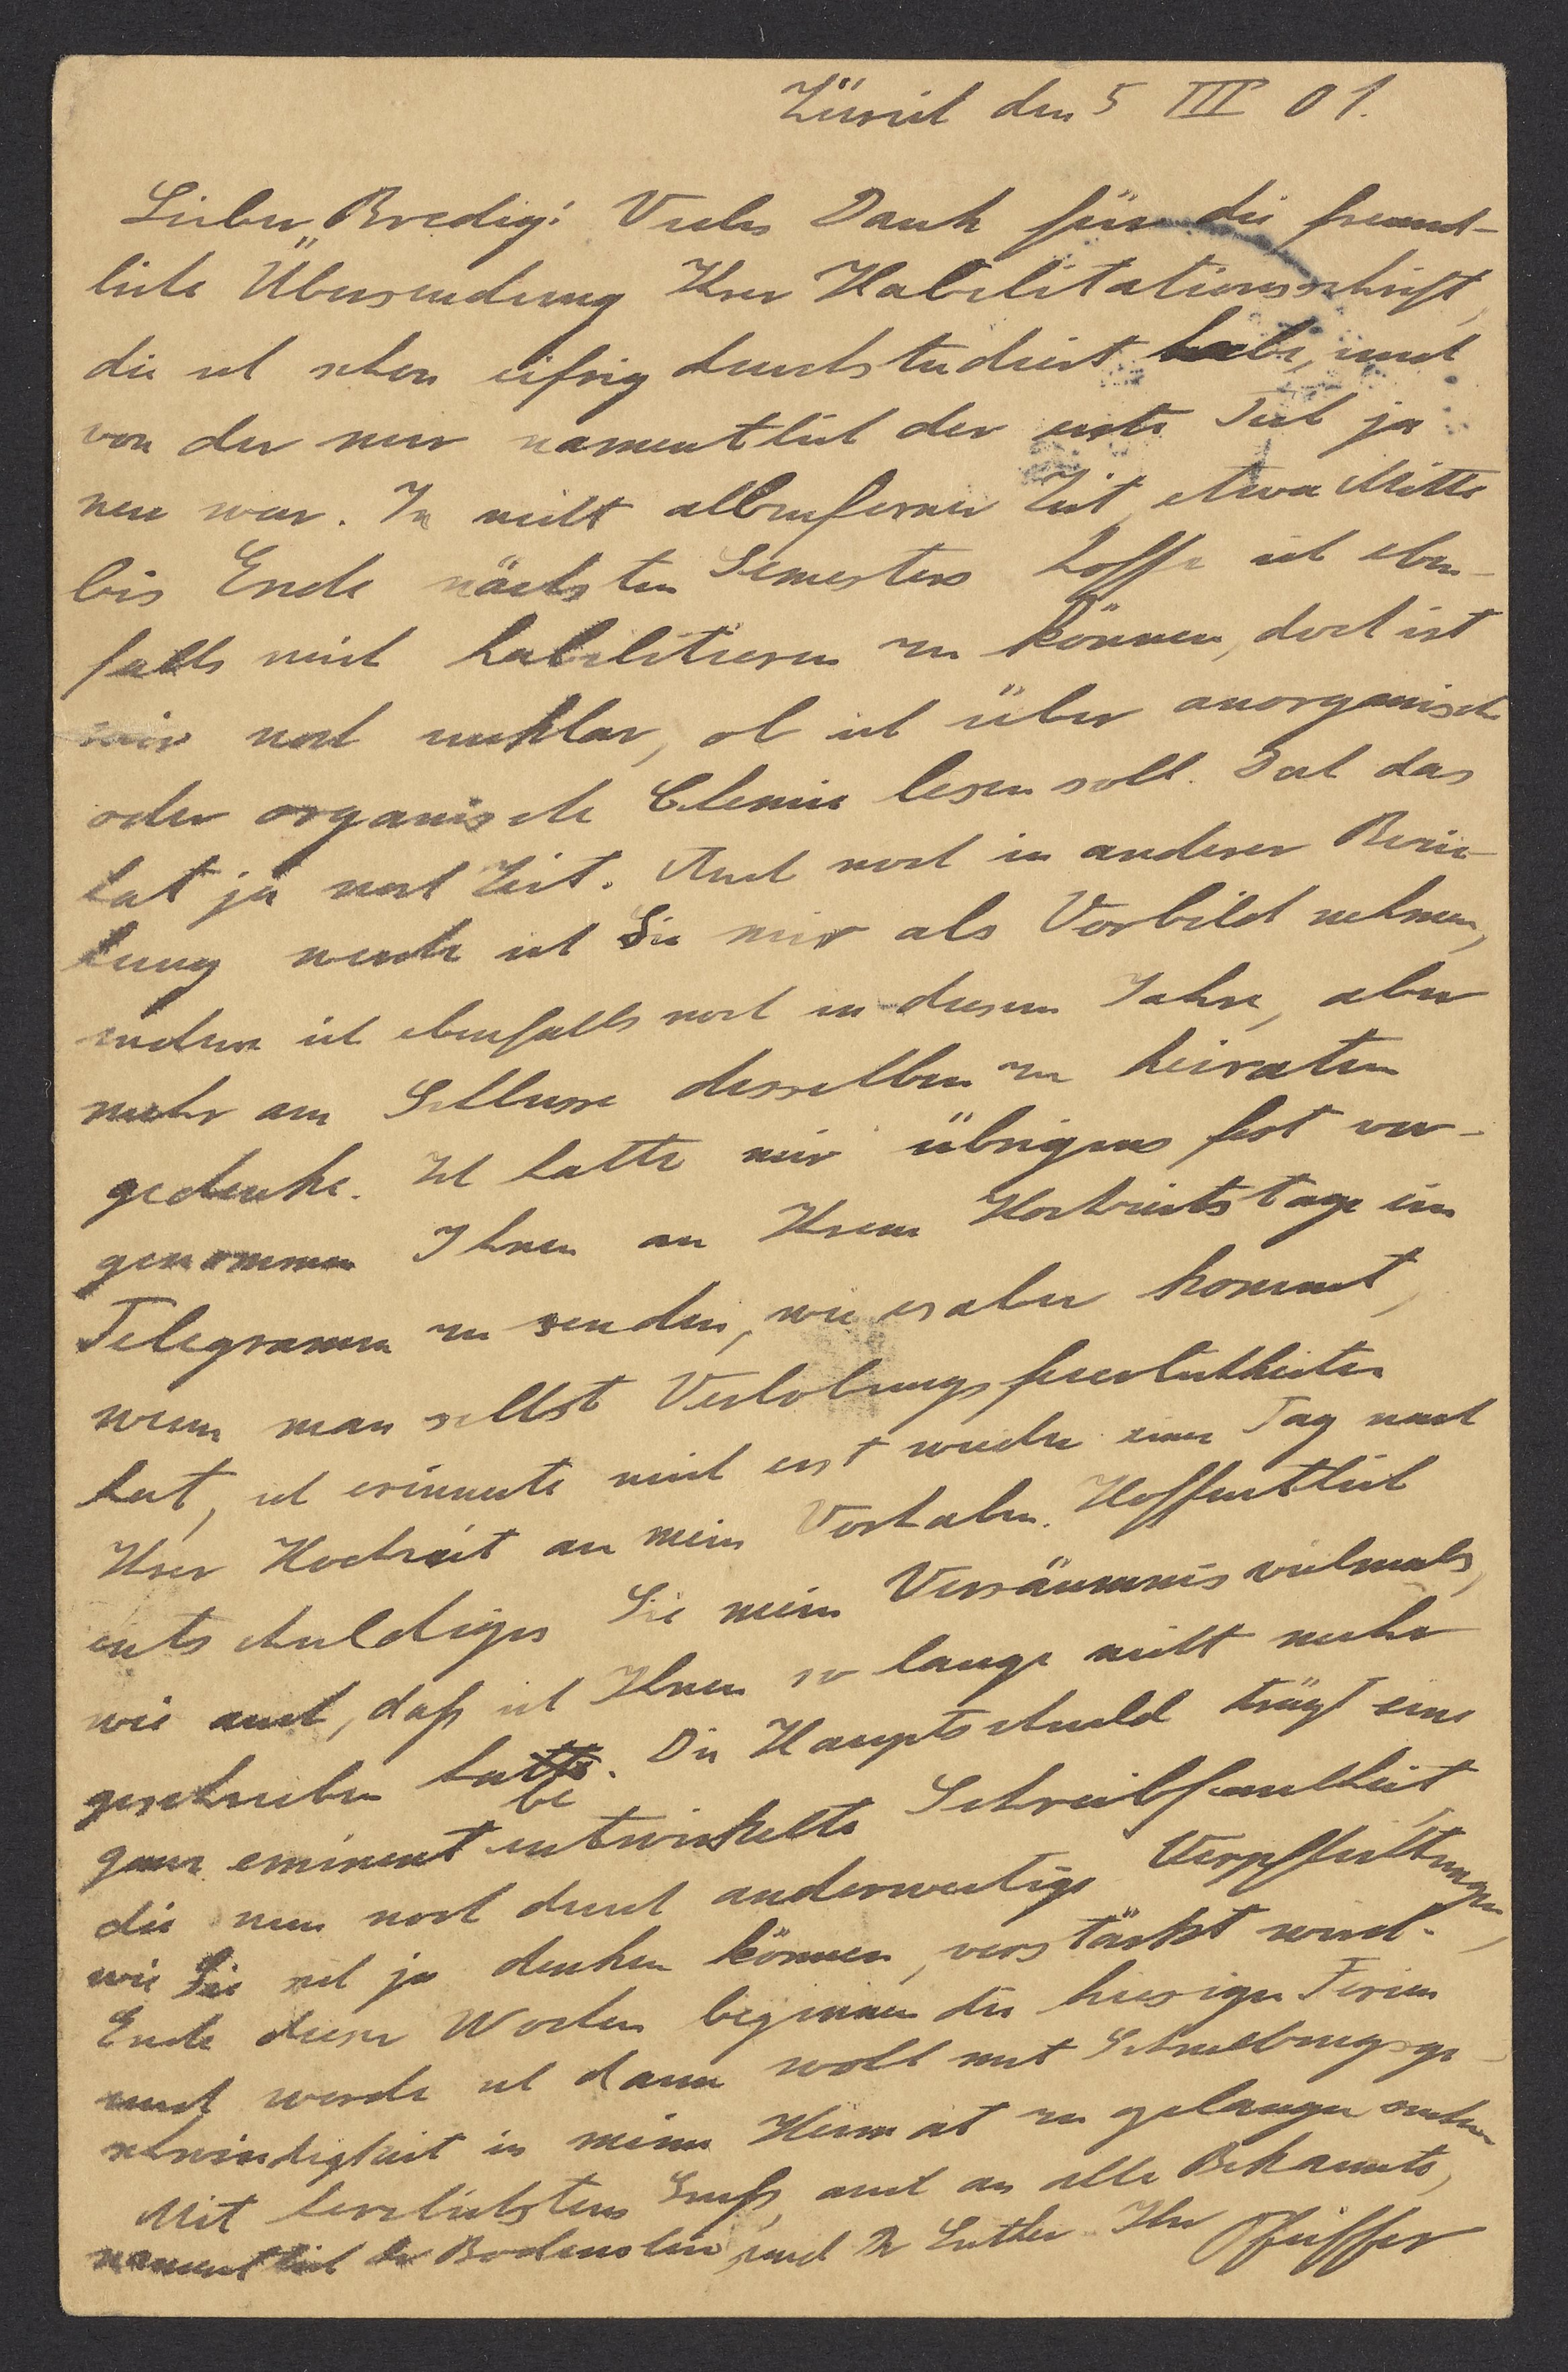 Zürich den 5 III 01.
Lieber Bredig! Vielen Dank für die freund-
liche Übersendung Ihrer Habilitationsschrift,
die ich schon eifrig durchstudiert habe, und
von der mir namentlich der erste Teil ja
neu war. In nicht allzuferner Zeit, etwa Mitte
bis Ende nächsten Semesters hoffe ich eben-
falls mich habilitieren zu können, doch ist
mir noch unklar, ob ich über anorganische
oder organische Chemie lesen soll. Doch das
hat ja noch Zeit. Auch noch in anderer Bezie-
hung werde ich Sie mir als Vorbild nehmen,
indem ich ebenfalls noch in diesem Jahre, aber
mehr am Schlusse desselben zu heiraten
gedenke. Ich hatte mir übrigens fest vor-
genommen Ihnen an Ihrem Hochzeitstage ein
Telegramm zu senden, wie es aber kommt,
wenn man selbst Verlobungsfeierlichkeiten
hat, ich erinnerte mich erst wieder einen Tag nach
Ihrer Hochzeit an mein Vorhaben. Hoffentlich
entschuldigen Sie mein Versäumnis vielmals,
wie auch, daß ich Ihnen so lange nicht mehr
geschrieben hatte. Die Hauptschuld trägt eine
be
ganz eminent entwickelte Schreibfaulheit,
die nun noch durch anderweitige Verpflichtungen,
wie Sie sich ja denken können, verstärkt wird.
Ende dieser Wochen beginnen die hiesigen Ferien
und werde ich dann wohl mit Schnellzugsge-
schwindigkeit in meine Heimat zu gelangen suchen
Mit herzlichstem Gruß, auch an alle Bekannte,
namentlich Dr Bodenstein und Dr Luther Ihr Pfeiffer